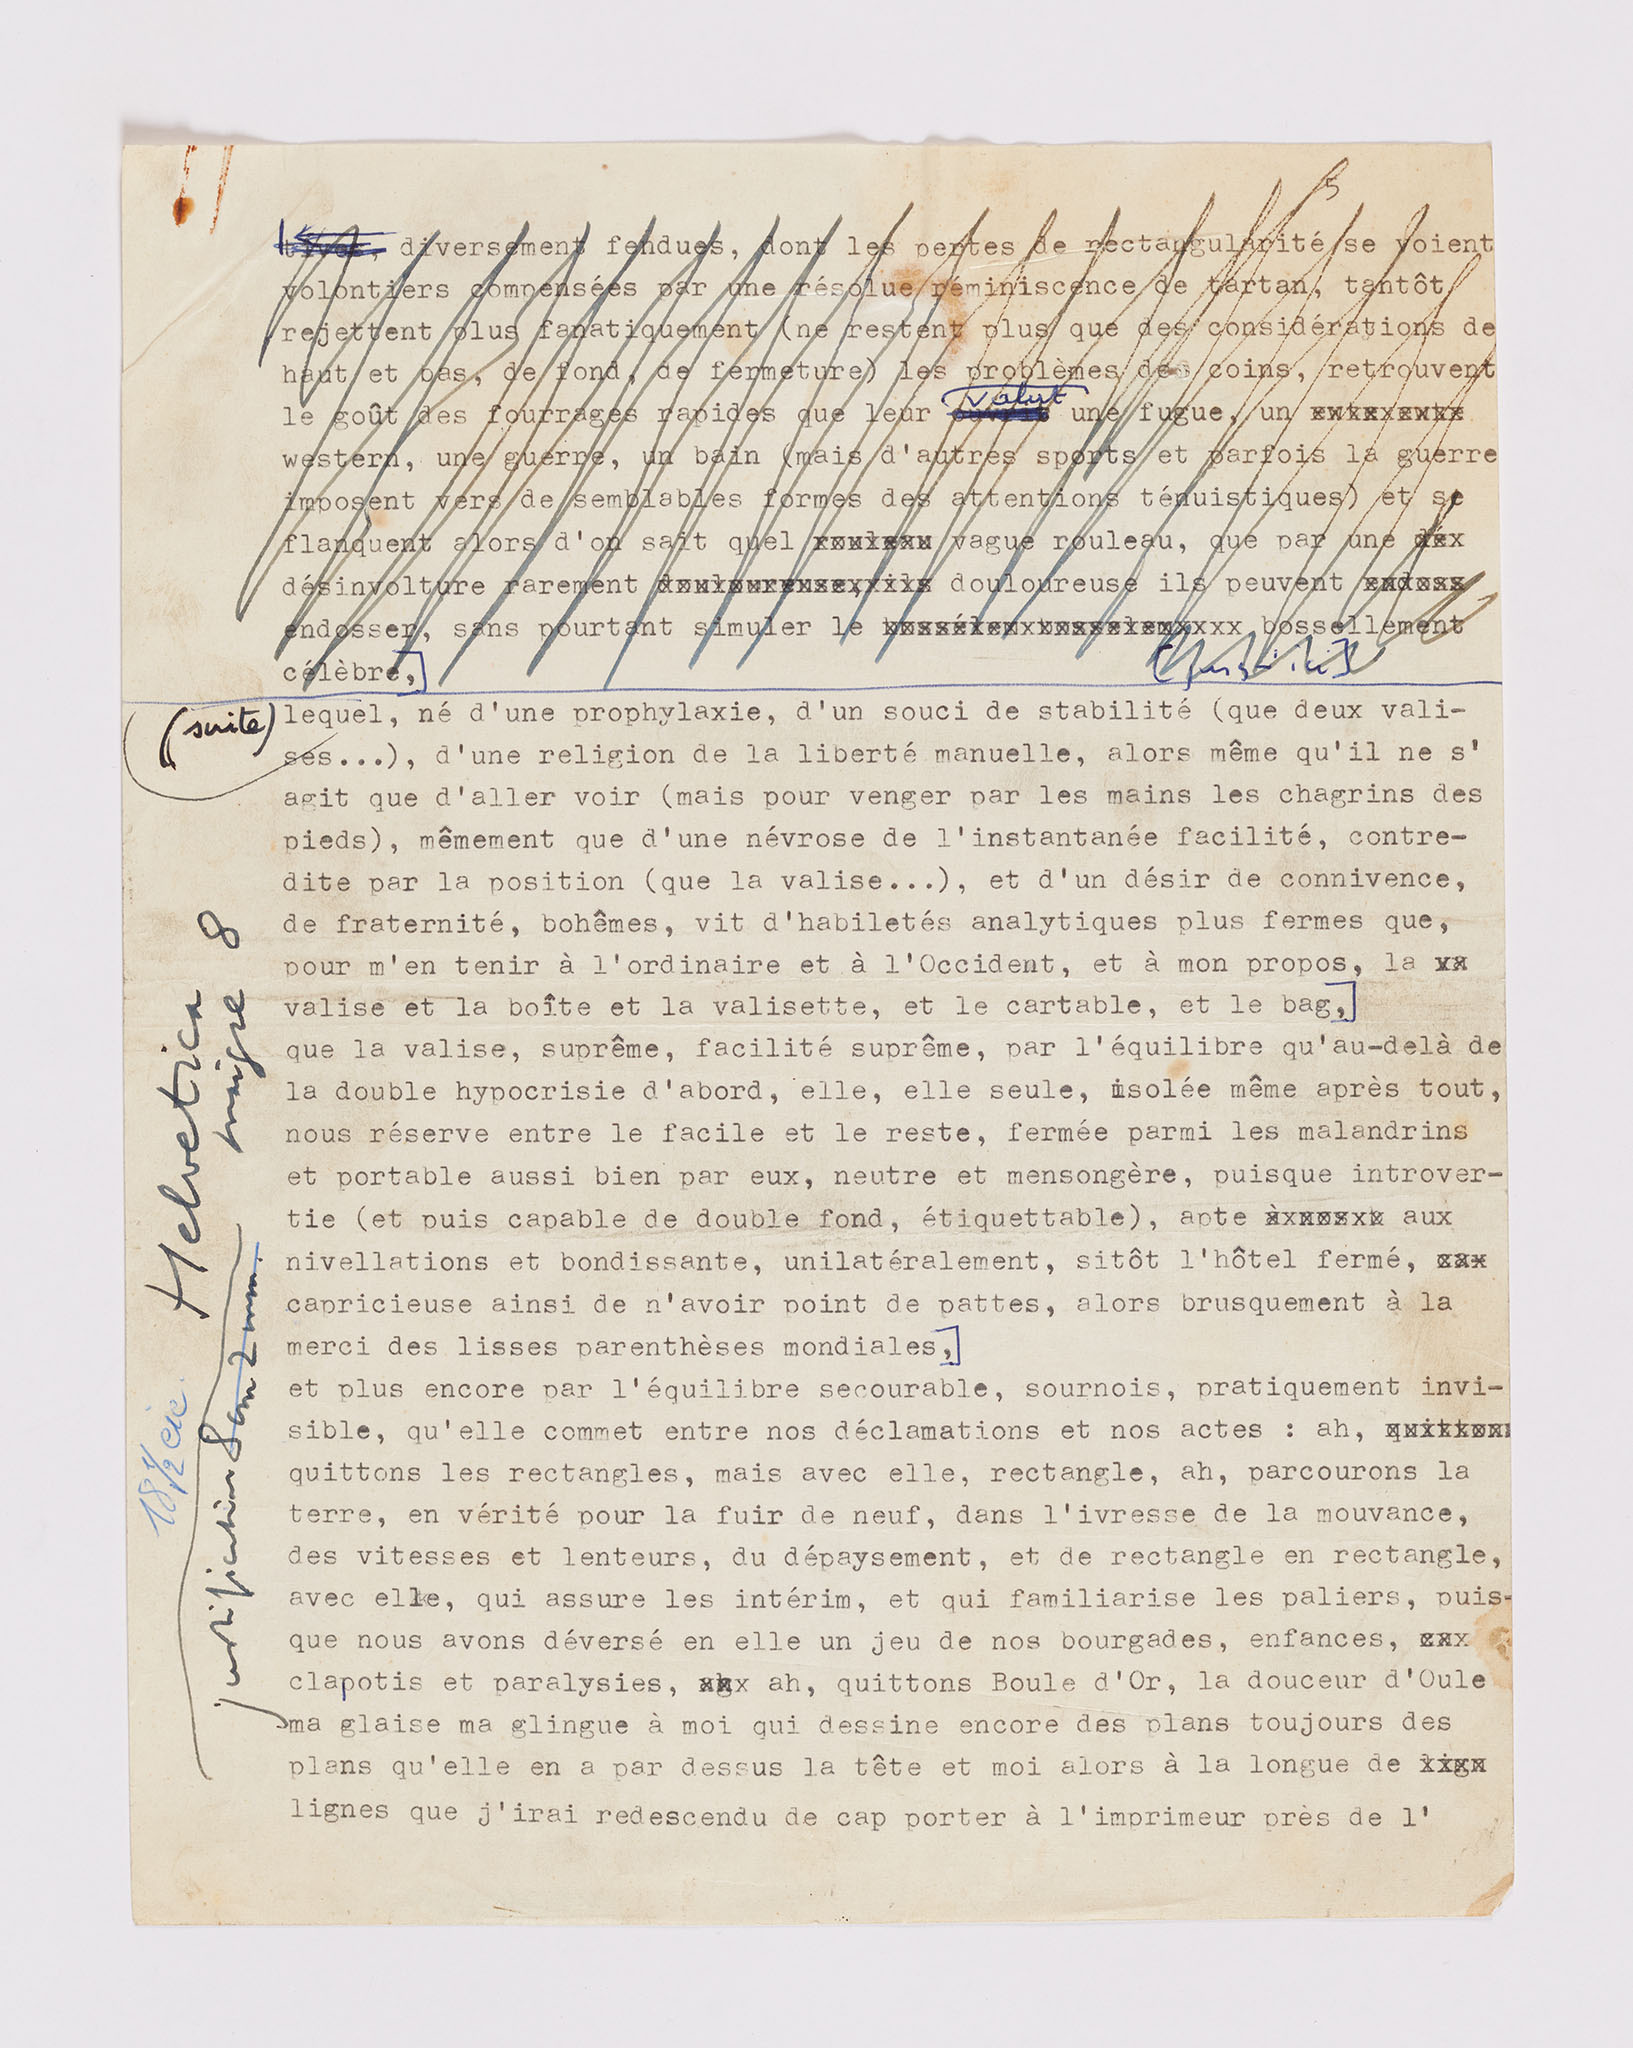 diversement fendues, dont les pertes de rectangularité se voient
volontiers compensées par une résolue réminiscence de tartan, tantôt
rejettent plus fanatiquement (ne restent plus que des considérations de
haut et bas, de fond, de fermeture) les problèmes des coins, retrouvent
valut
le goût des fourrages rapides que leur une fugue, un
western, une guerre, un bain (mais d'autres sports et parfois la guerre
imposent vers de semblables formes des attentions ténuistiques) et se
flanquent alors d'on sait quel rouleau vague rouleau, que par une déx
désinvolture rarement douloureuse, ils douloureuse ils peuvent endoss
endosser, sans pourtant simuler le bossellement
célèbre,]
(suite) lequel, né d'une prophylaxie, d'un souci de stabilité (que deux vali-
ses...), d'une religion de la liberté manuelle, alors même qu'il ne s'
agit que d'aller voir (mais pour venger par les mains les chagrins des
pieds), mêmement que d'une névrose de l'instantanée facilité, contre-
dite par la position (que la valise...), et d'un désir de connivence,
de fraternité, bohêmes, vit d'habiletés analytiques plus fermes que,
pour m'en tenir à l'ordinaire et à l'Occident, et à mon propos, la
valise et la boîte et la valisette, et le cartable, et le bag,]
que la valise, suprême, facilité suprême, par l'équilibre qu'au-delà de
la double hypocrisie d'abord, elle, elle seule, isolée même après tout,
nous réserve entre le facile et le reste, fermée parmi les malandrins
et portable aussi bien par eux, neutre et mensongère, puisque introver-
tie (et puis capable de double fond, étiquettable), apte aux
nivellations et bondissante, unilatéralement, sitôt l'hôtel fermé,
capricieuse ainsi de n'avoir point de pattes, alors brusquement à la
merci des lisses parenthèses mondiales,]
et plus encore par l'équilibre secourable, sournois, pratiquement invi-
sible, qu'elle commet entre nos déclamations et nos actes : ah, quittons
quittons les rectangles, mais avec elle, rectangle, ah, parcourons la
terre, en vérité pour la fuir de neuf, dans l'ivresse de la mouvance,
des vitesses et lenteurs, du dépaysement, et de rectangle en rectangle,
avec elle, qui assure les intérim, et qui familiarise les paliers, puis-
que nous avons déversé en elle un jeu de nos bourgades, enfances,
clapotis et paralysies, ah, quittons Boule d'Or, la douceur d'Oule
ma glaise ma glingue à moi qui dessine encore des plans toujours des
plans qu'elle en a par dessus la tête et moi alors à la longue de lign
lignes que j'irai redescendu de cap porter à l'imprimeur près de l'
Helvetica
maigre 8
justification 8 cm 2 mm.
18 1/2 cic.